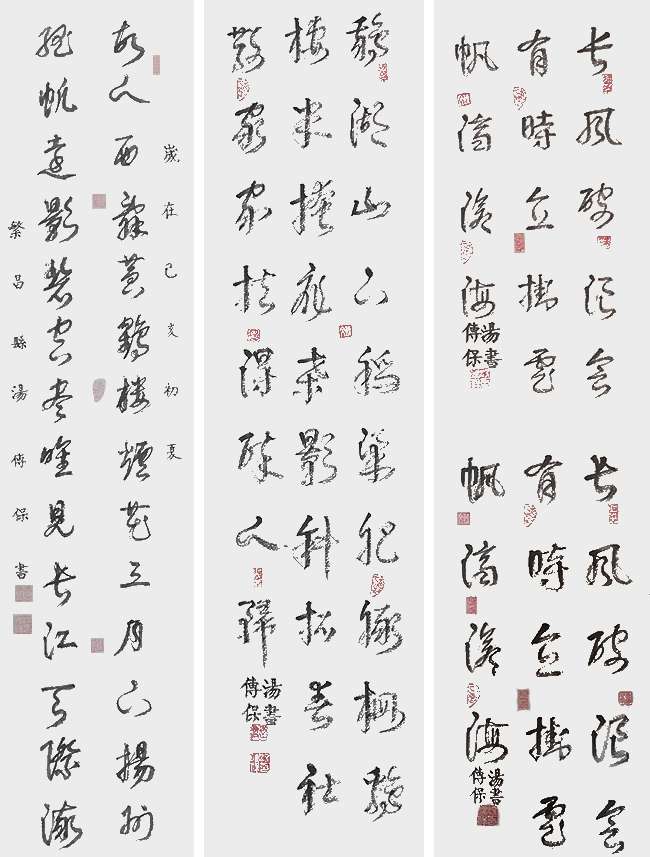 長風破浪會
有時直掛雲
帆濟滄海
湯書
傳保
長風破浪會
有時直掛雲
帆濟滄海
湯書
傳保
鵝湖山下稻粱肥豚柵雞
棲半掩扉桑影斜柘春社
散家家扶得醉人歸
湯書
傳保
歲在己亥初夏
故人西辭黃鶴樓煙花三月下揚州
孤帆遠影碧空盡唯見長江天際流
繁昌縣湯傳保書